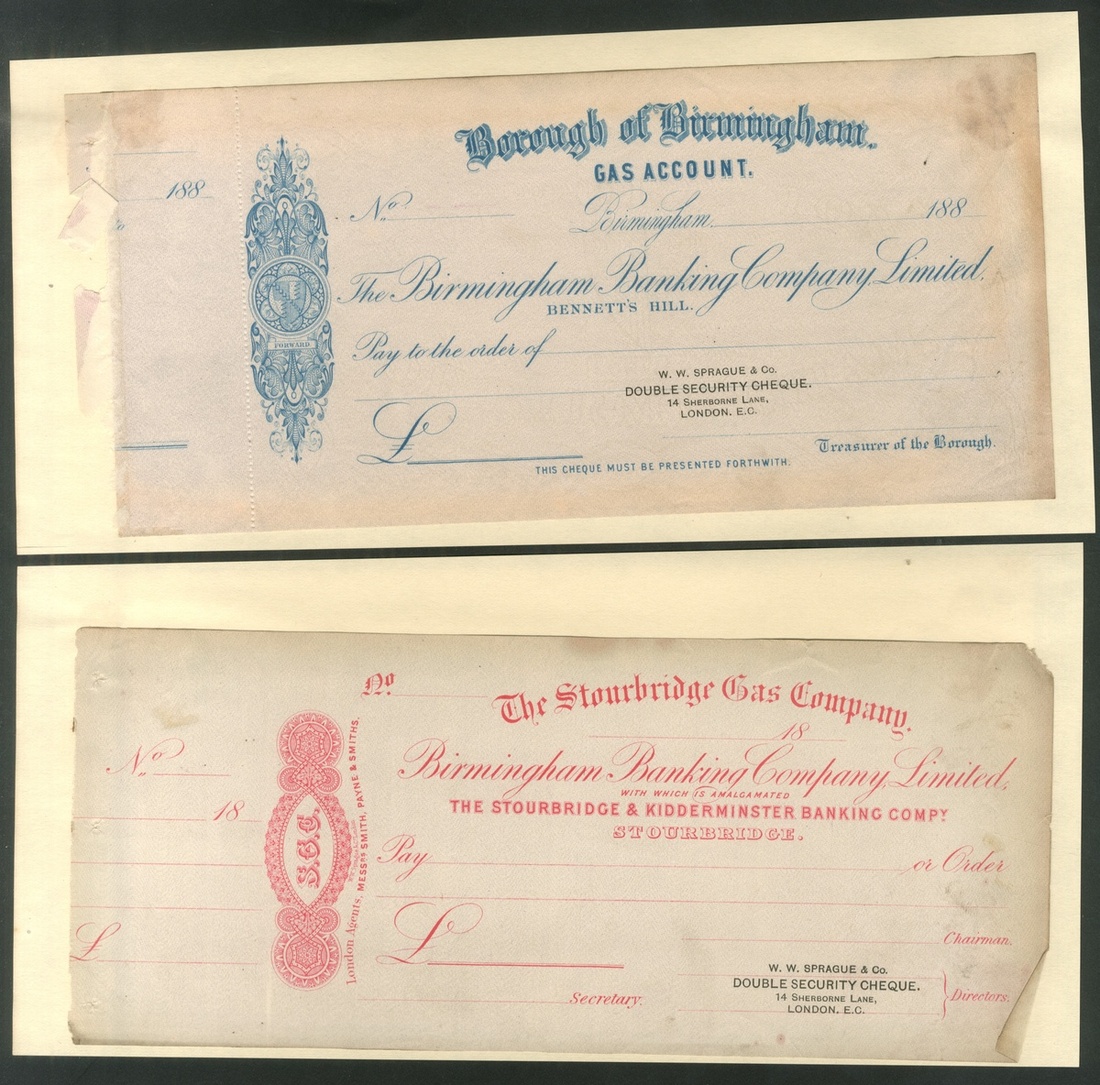 188
Borough of Birmingham.
GAS ACCOUNT.
No.
Birmingham 188
The Birmingham Banking Company, Limited,
BENNETT'S HILL.
FORWARD
Pay to the order of
W. W. SPRAGUE & Co.
DOUBLE SECURITY CHEQUE.
14 SHERBORNE LANE,
LONDON. E.C.
£
Treasurer of the Borough.
THIS CHEQUE MUST BE PRESENTED FORTHWITH.
No.
18
£
S.G.C.
London Agents, MESSRS SMITH, PAYNE & SMITHS.
No
The Stourbridge Gas Company.
18
Birmingham Banking Company, Limited,
WITH WHICH IS AMALGAMATED
THE STOURBRIDGE & KIDDERMINSTER BANKING COMPY
STOURBRIDGE.
Pay or Order
£
Chairman.
W. W. SPRAGUE & Co.
DOUBLE SECURITY CHEQUE.
14 SHERBORNE LANE,
LONDON. E.C.
Directors.
Secretary.